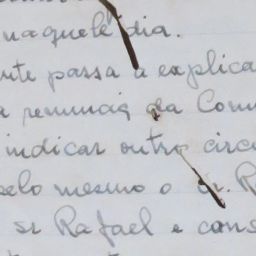 naquele dia.
nte passa a explica
a renuncia da Com
indicar outro circ
pelo mesmo o sr. R
sr Rafael e cons